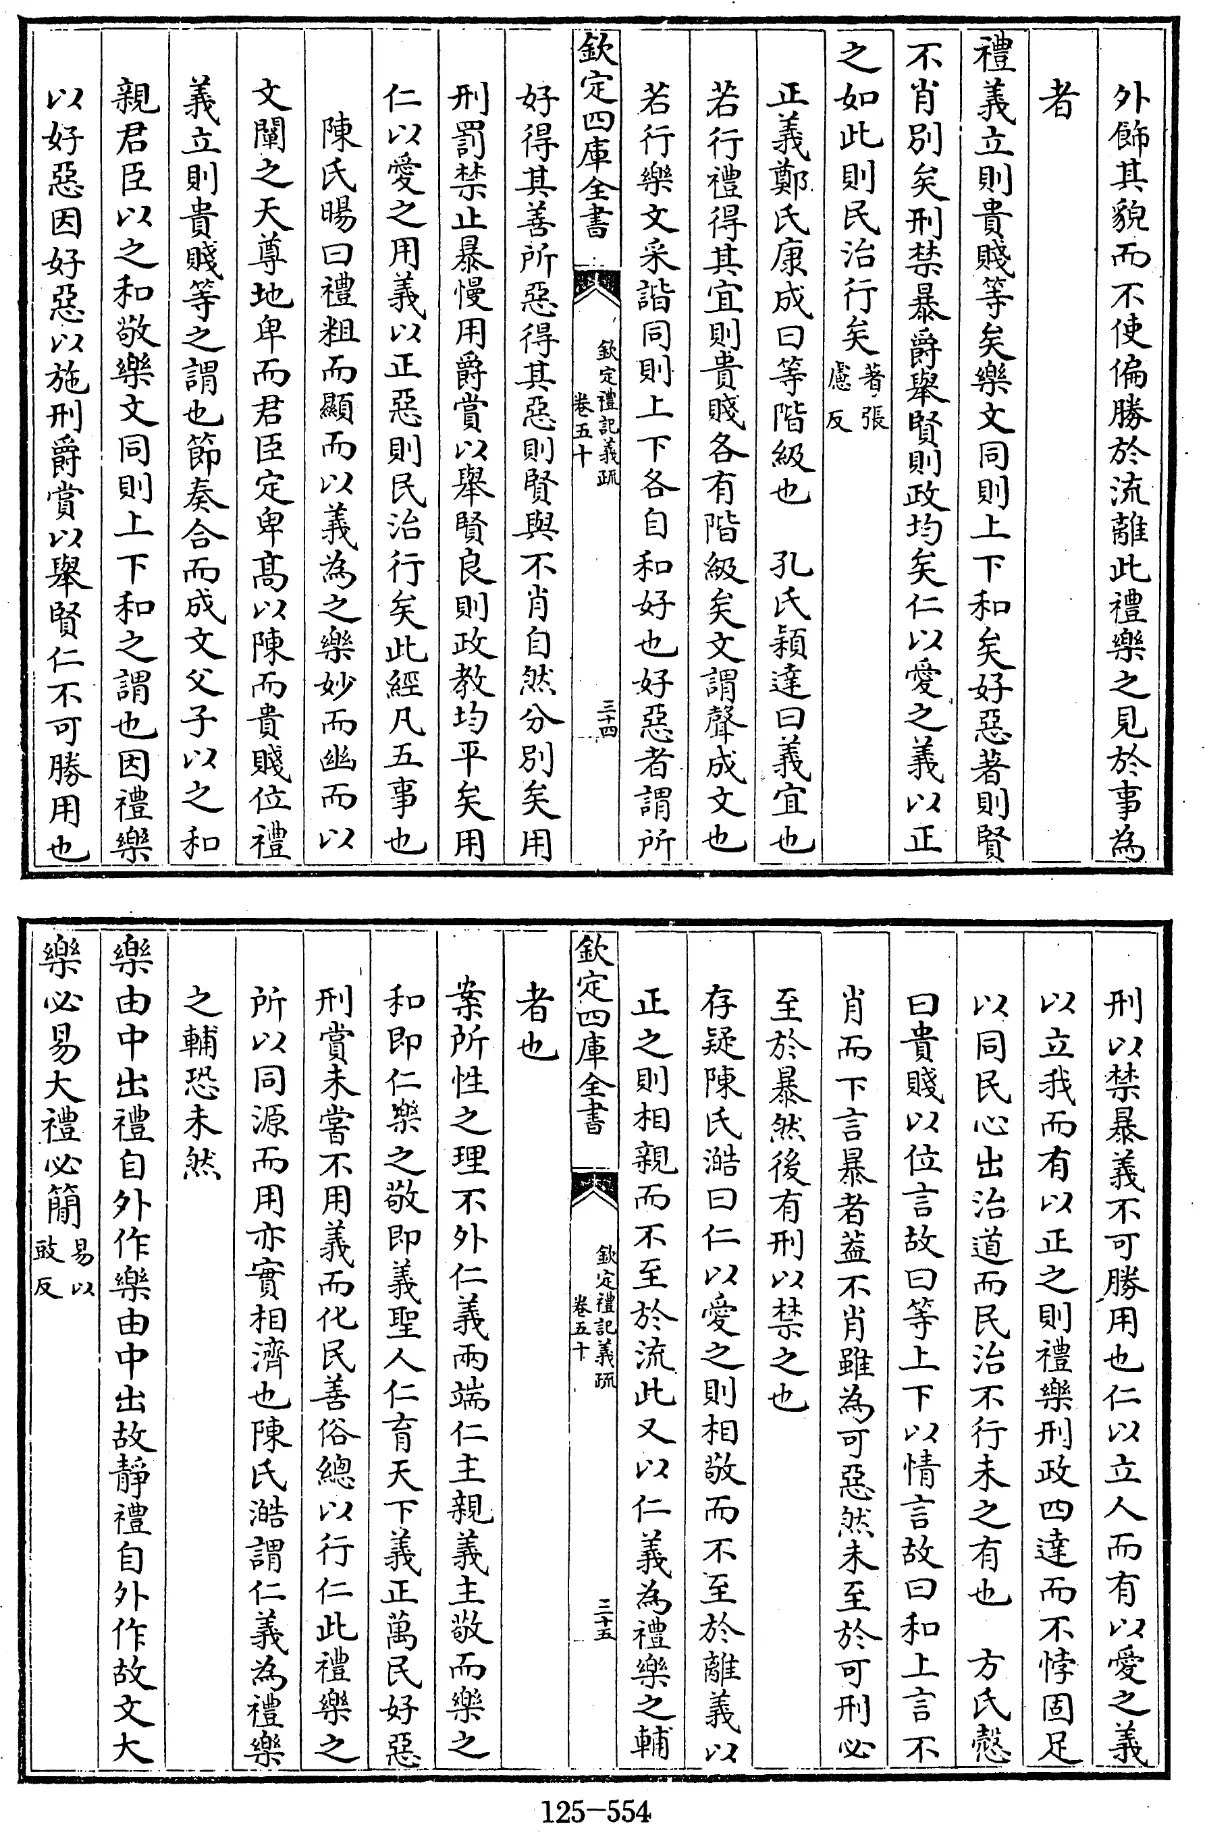 外飾其貌而不使偏勝於流離此禮樂之見於事為
者
禮義立則貴賤等矣樂文同則上下和矣好惡著則賢
不肖別矣刑禁暴爵舉賢則政均矣仁以愛之義以正
之如此則民治行矣著張慮反
正義鄭氏康成曰等階級也 孔氏穎達曰義宜也
若行禮得其宜則貴賤各有階級矣文謂聲成文也
若行樂文采諧同則上下各自和好也好惡者謂所
欽定四庫全書 欽定禮記義疏 卷五十 三十四
好得其善所惡得其惡則賢與不肖自然分別矣用
刑罰禁止暴慢用爵賞以舉賢良則政教均平矣用
仁以愛之用義以正惡則民治行矣此經凡五事也
陳氏暘曰禮粗而顯而以義為之樂妙而幽而以
文闡之天尊地卑而君臣定卑高以陳而貴賤位禮
義立則貴賤等之謂也節奏合而成文父子以之和
親君臣以之和敬樂文同則上下和之謂也因禮樂
以好惡因好惡以施刑爵賞以舉賢仁不可勝用也
刑以禁暴義不可勝用也仁以立人而有以愛之義
以立我而有以正之則禮樂刑政四達而不悖固足
以同民心出治道而民治不行未之有也 方氏慤
曰貴賤以位言故曰等上下以情言故曰和上言不
肖而下言暴者葢不肖雖為可惡然未至於可刑必
至於暴然後有刑以禁之也
存疑陳氏澔曰仁以愛之則相敬而不至於離義以
正之則相親而不至於流此又以仁義為禮樂之輔
欽定四庫全書 欽定禮記義疏 卷五十 三十五
者也
案所性之理不外仁義兩端仁主親義主敬而樂之
和即仁樂之敬即義聖人仁育天下義正萬民好惡
刑賞未嘗不用義而化民善俗總以行仁此禮樂之
所以同源而用亦實相濟也陳氏澔謂仁義為禮樂
之輔恐未然
樂由中出禮自外作樂由中出故靜禮自外作故文大
樂必易大禮必簡易以豉反
125-554